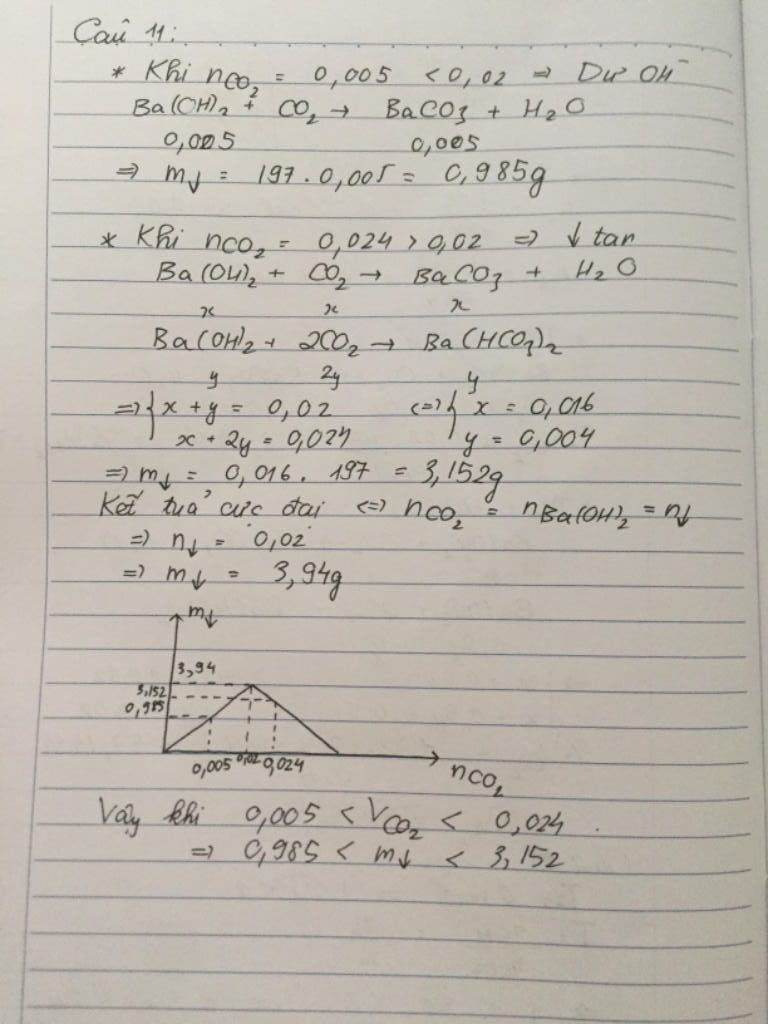 Câu 11:
* Khi nCO₂ = 0,005 < 0,02 => Dư OH⁻
Ba(OH)₂ + CO₂ → BaCO₃ + H₂O
0,005 0,005
=> m↓ = 197 . 0,005 = 0,985g
* Khi nCO₂ = 0,024 > 0,02 => ↓ tan
Ba(OH)₂ + CO₂ → BaCO₃ + H₂O
x x x
Ba(OH)₂ + 2CO₂ → Ba(HCO₃)₂
y 2y y
=> { x + y = 0,02 <=> { x = 0,016
x + 2y = 0,024 y = 0,004
=> m↓ = 0,016 . 197 = 3,152g
Kết tuả cực đai <=> nCO₂ = nBa(OH)₂ = n↓
=> n↓ = 0,02
=> m↓ = 3,94g
m↓
3,94
3,152
0,985
0,005 0,02 0,024
nCO₂
Vâỵ khi 0,005 < VCO₂ < 0,024 .
=> 0,985 < m↓ < 3,152